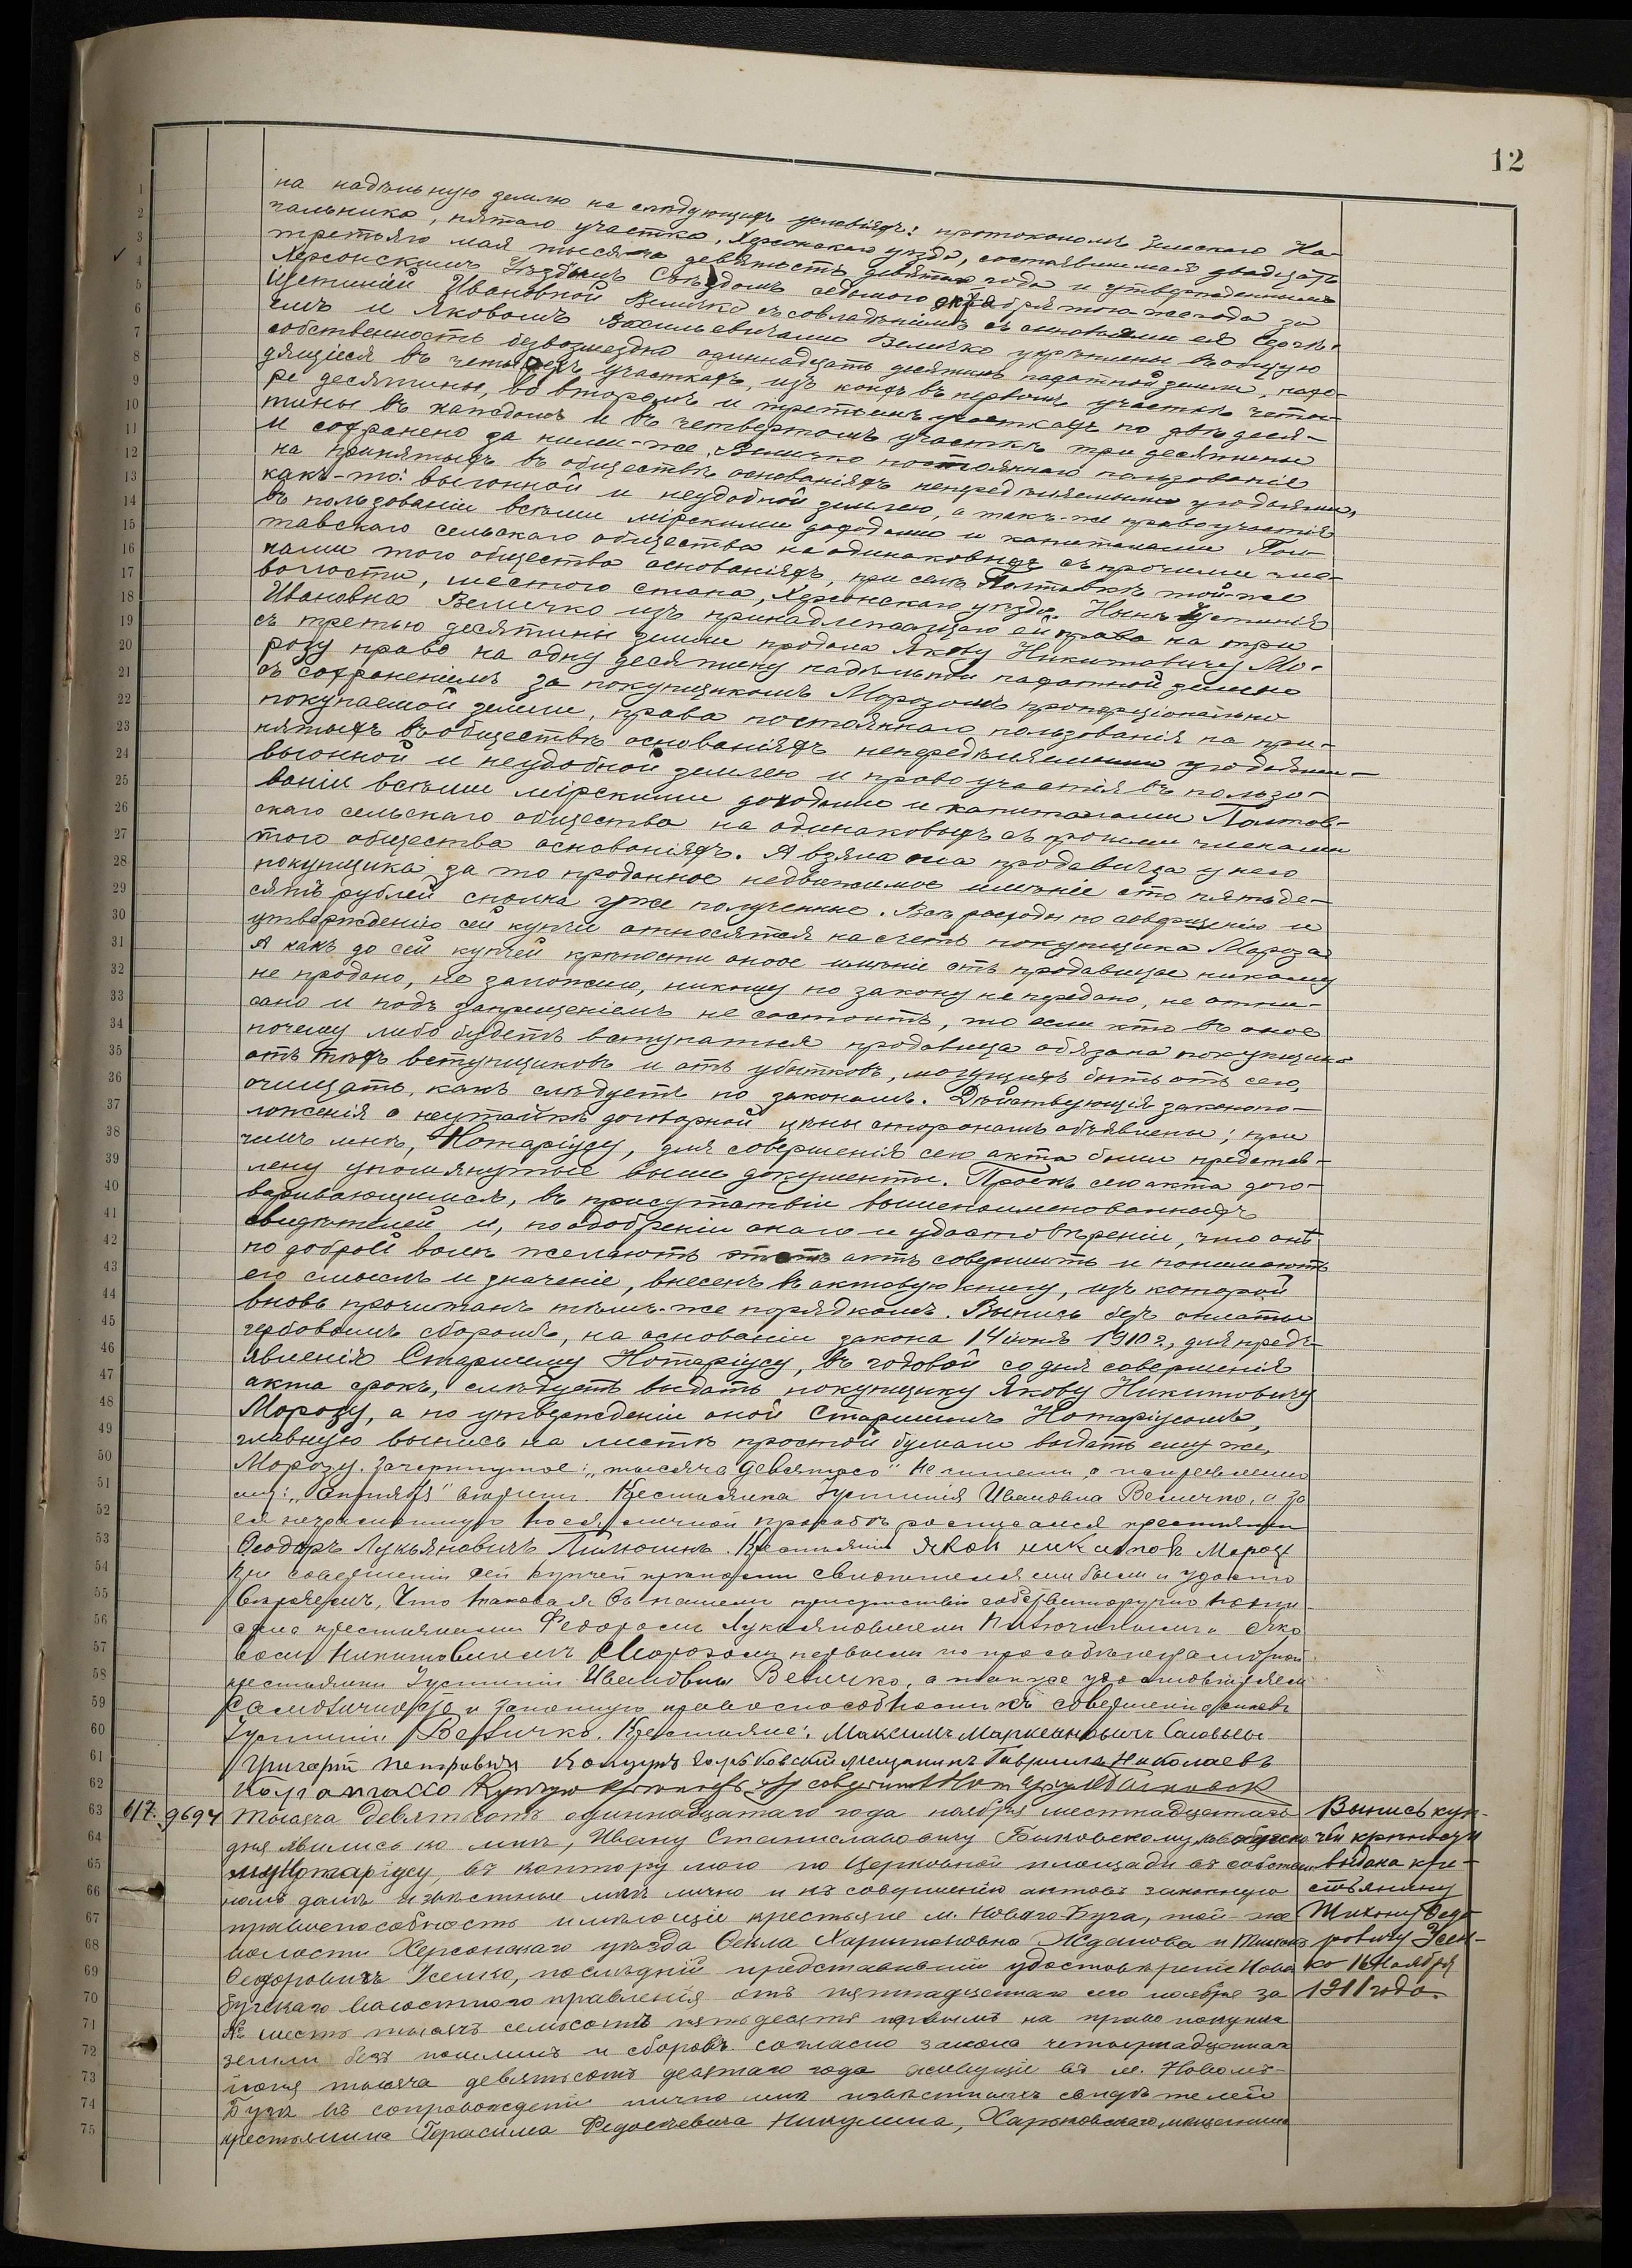 12
на надѣльную землю на слѣдующихъ условіяхъ: протоколомъ Земскаго На-
чальника, пятаго участка, Херсонскаго уѣзда, состоявшимся двадцать
третьяго мая тысяча девятьсотъ девятаго года и утвержденнымъ
Херсонскимъ Уѣзднымъ Съѣздомъ седьмого октября того-же года за
Іустиніей Ивановной Величко съ совладѣніемъ съ сыновьями ея Сергѣ-
емъ и Яковомъ Васильевичами Величко укрѣплены въ общую
собственность безвозмездно одиннадцать десятинъ пахатной земли, нахо-
дящіеся въ четырехъ участкахъ, изъ коихъ въ первомъ участкѣ четы-
ре десятины, во второмъ и третьемъ участкахъ по двѣ деся-
тины въ каждомъ и въ четвертомъ участкѣ три десятины
и сохранено за ними-же Величко постояннаго пользованія
на принятыхъ въ обществѣ основаніяхъ непередѣляемыми угодьями,
какъ-то: выгонной и неудобной землею, а такъ-же право участія
въ пользованіи всѣми мірскими доходами и капиталами Пол-
тавскаго сельскаго общества на одинаковыхъ съ прочими чле-
нами того общества основаніяхъ, при селѣ Полтавкѣ той-же
волости, шестого стана, Херсонскаго уѣзда. Нынѣ Іустинія
Ивановна Величко изъ принадлежащаго ей права на три
съ третью десятины земли продала Якову Никитовичу Мо-
розу право на одну десятину надѣльной пахатной земли
съ сохраненіемъ за покупщикомъ Морозомъ пропорціонально
покупаемой земли, права постояннаго пользованія на при-
нятыхъ въ обществѣ основаніяхъ непередѣляемыми угодьями-
выгонной и неудобной землею и право участія въ пользо-
ваніи всѣми мірскими доходами и капиталами Полтав-
скаго сельскаго общества на одинаковыхъ съ прочими членами
того общества основаніяхъ. А взяла она продавица у него
покупщика за то проданное недвижимое имѣніе сто пятьде-
сятъ рублей сполна уже полученные. Всѣ расходы по совершенію и
утвержденію сей купчей относятся на счетъ покупщика Мороза
А какъ до сей купчей крѣпости оное имѣніе отъ продавицы никому
не продано, не заложено, никому по закону не передано, не отпи-
сано и подъ запрещеніемъ не состоитъ, то если кто въ оное
почему либо будетъ вступаться продавица обязана покупщика
отъ тѣхъ вступщиковъ и отъ убытковъ, могущихъ быть отъ сего,
очищать, какъ слѣдуетъ по законамъ. Дѣйствующія законопо-
ложенія о неутайкѣ договорной цѣны сторонамъ объявлены; при
чемъ мнѣ, Нотаріусу, для совершенія сего акта были представ-
лены упомянутые выше документы. Проектъ сего акта дого-
варивающимися, въ присутствіи вышепоименованныхъ
свидѣтелей и, по одобреніи онаго и удостовѣреніи, что они
по доброй волѣ желаютъ этотъ актъ совершить и понимаютъ
его смыслъ и значеніе, внесенъ въ актовую книгу, изъ которой
вновь прочитанъ тѣмъ-же порядкомъ. Выпись безъ оплаты
гербовымъ сборомъ, на основаніи закона 14 іюня 1910 г., для предъ-
явленія Старшему Нотаріусу, въ годовой со дня совершенія
акта срокъ, слѣдуетъ выдать покупщику Якову Никитовичу
Морозу, а по утвержденіи оной Старшимъ Нотаріусомъ,
главную выпись на листѣ простой бумаги выдать ему же,
Морозу. Зачеркнутое: „тысяча девятьсо" не читать, а
„октября" Крестьянка Іустинія Ивановна Величко, а за
ея неграмотную по ея личной просьбѣ росписался крестьянинъ
Ѳеодоръ Лукьяновичъ Крестьянинъ Яков никитов Мороз
При совершеніи сей купчей крѣпости свидѣтелями были и удосто
вѣряемъ, что таковая въ нашемъ присутствіи собственноручно подпи
сана крестьянами Федоромъ Лукьяновичемъ и Яко
вомъ Никитовичемъ Морозомъ первымъ по просьбѣ неграмотной
крестьянки Іустиніи Ивановны Величко, а также удостовѣряемъ
самоличность и законную правоспособность къ совершенію актовъ
Іустиніи Величко. Крестьяне: Максимъ Соловьевъ
Григорій Петровичъ мѣщанинъ Гавріилъ Николаевъ
Купчую крѣпость эту совершилъ Нотаріусъ
617. 9694 Тысяча девятьсотъ одиннадцатаго года ноября шестнадцатаго
дня явились ко мнѣ, Ивану Станиславовичу Быковскому
Нотаріусу, въ контору мою по Церковной площади въ собствен
номъ домѣ извѣстные мнѣ лично и къ совершенію актовъ законную
правоспособность имѣющіе крестьяне м. Новаго-Буга, той-же
волости Херсонскаго уѣзда Ѳекла Харитоновна Жданова и Тихонъ
Ѳедоровичъ Усенко, послѣдній представившій удостовѣреніе Ново
бугскаго волостного правленія отъ пятнадцатаго сего ноября за
№ шесть тысячъ семьсотъ пятьдесятъ первымъ на право покупки
земли безъ пошлинъ и сборовъ согласно закона четырнадцатаго
іюня тысяча девятьсотъ десятаго года живущіе въ м. Новомъ-
Бугѣ въ сопровожденіи лично мнѣ извѣстныхъ свидѣтелей
крестьянина Герасима Федосѣевича Никулина, Харьковскаго мѣщанина
Выпись куп-
чей крѣпости
выдана кре-
стьянину
Тихону Ѳедо
ровичу Усен-
ко 16 Ноября
1911 года.